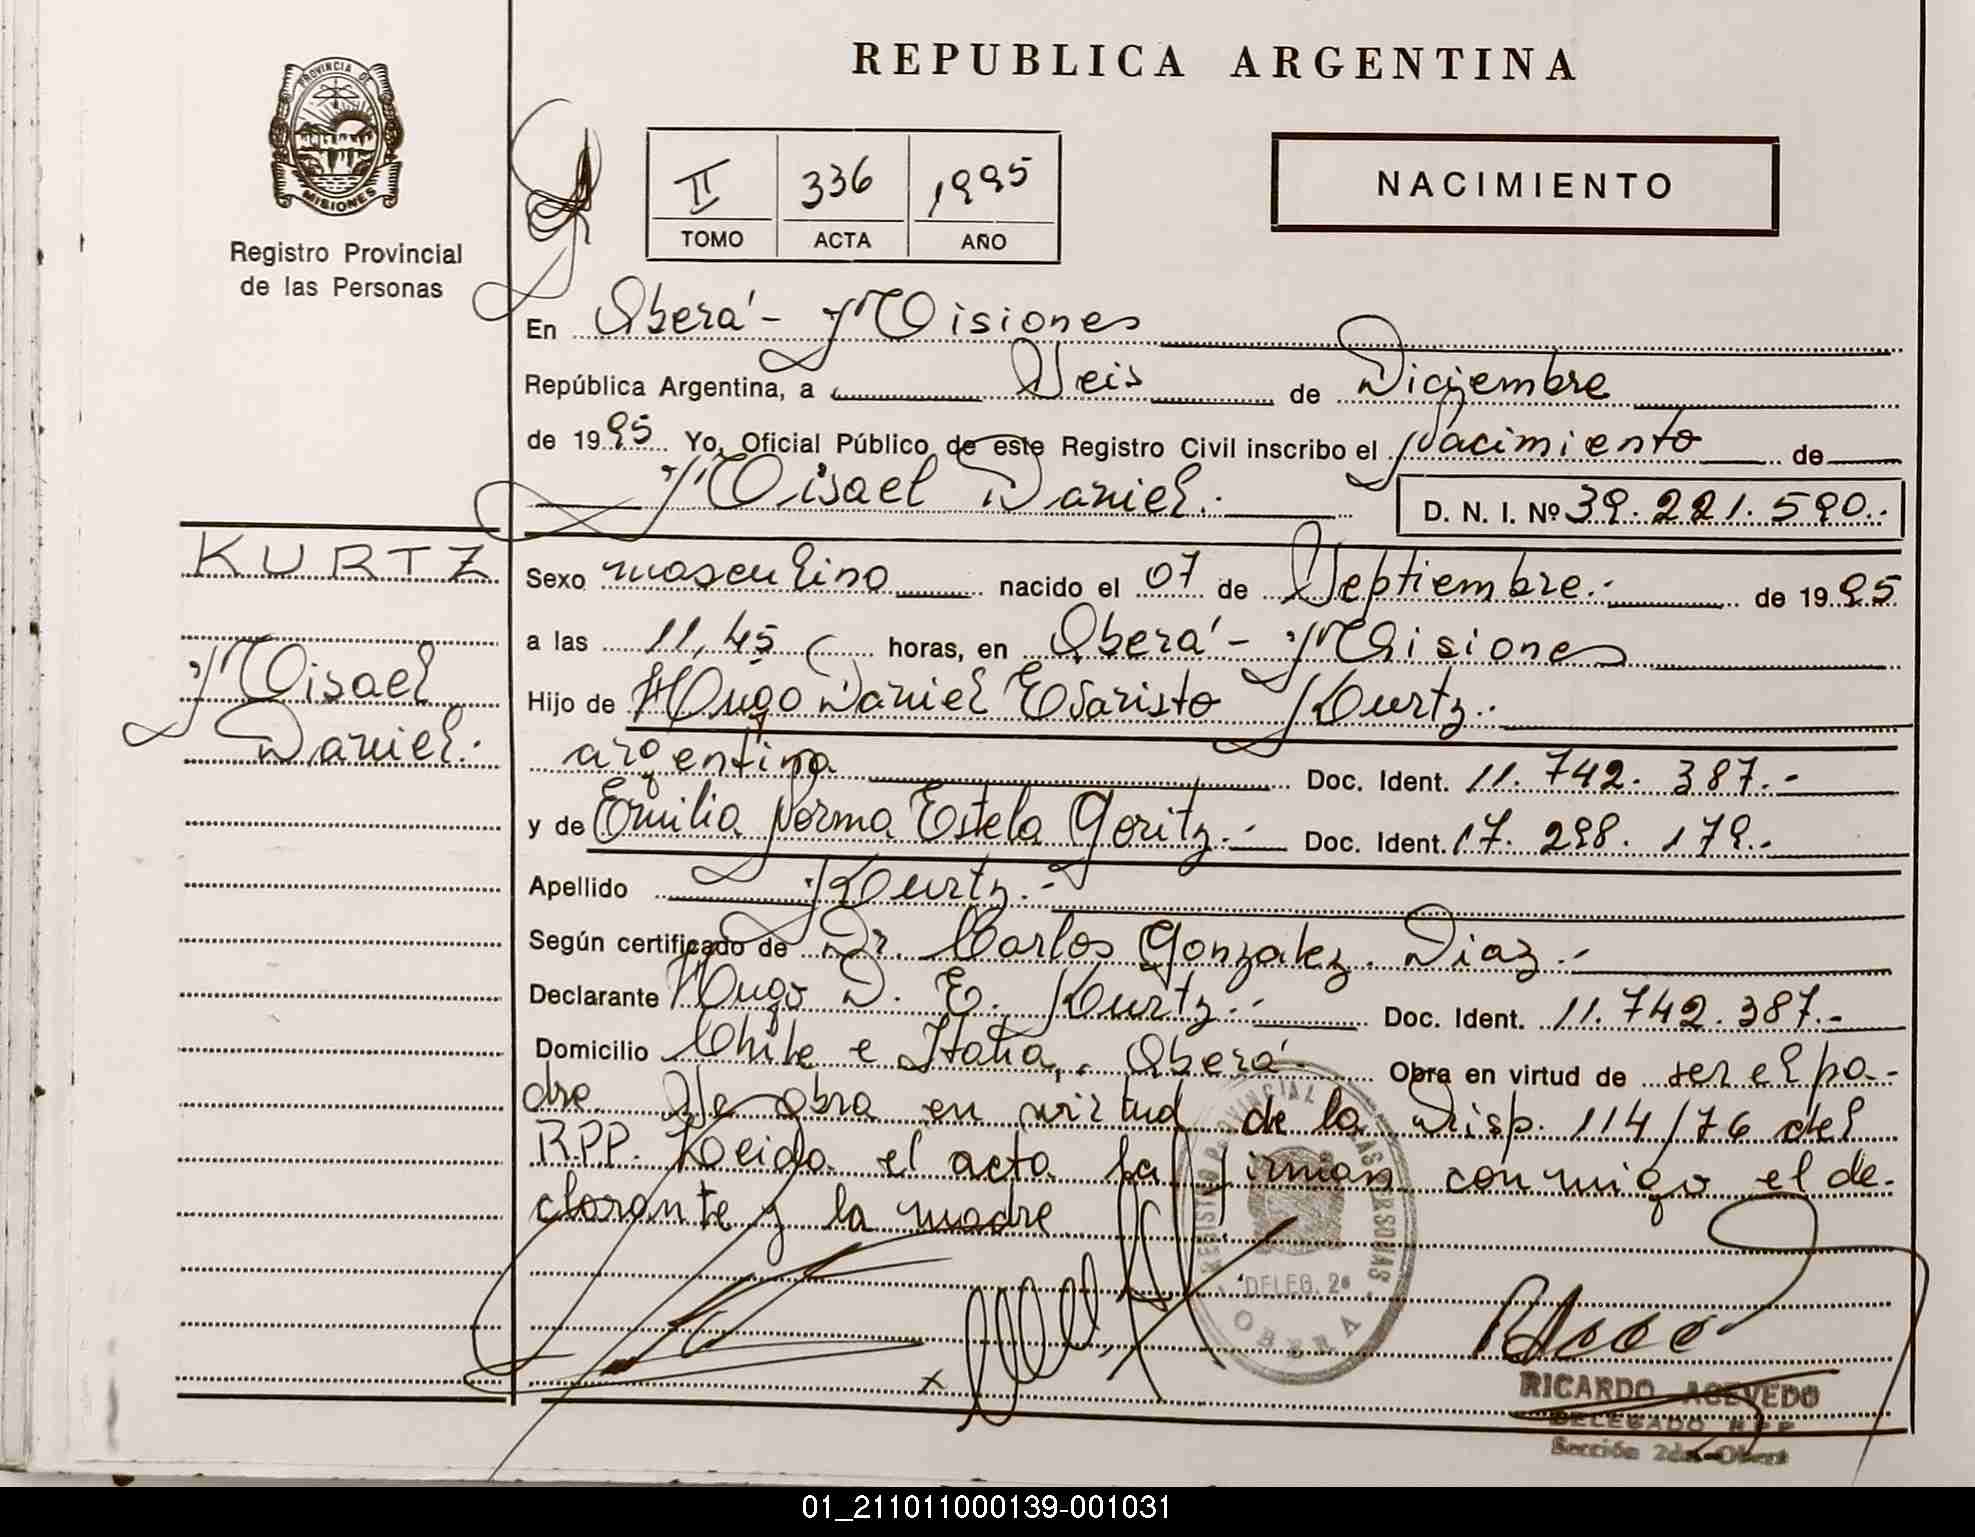 PROVINCIA DE
MISIONES
Registro Provincial
de las Personas
REPUBLICA ARGENTINA
II 336 1995
TOMO ACTA AÑO
NACIMIENTO
En Oberá - Misiones
República Argentina, a Seis de Diciembre
de 1995 Yo, Oficial Público de este Registro Civil inscribo el Nacimiento de
Misael Daniel.
D. N. I. Nº 39.221.590.
KURTZ
Misael
Daniel.
Sexo masculino nacido el 07 de Septiembre. de 1995
a las 11,45 horas, en Oberá - Misiones
Hijo de Hugo Daniel Evaristo Kurtz.
argentino Doc. Ident. 11.742.387.-
y de Emilia Norma Estela Goritz.- Doc. Ident. 17.298.179.-
Apellido Kurtz.-
Según certificado de Dr. Carlos Gonzalez Diaz.-
Declarante Hugo D. E. Kurtz.- Doc. Ident. 11.742.387.-
Domicilio Chile e Italia, Oberá Obra en virtud de ser el pa-
dre. Se obra en virtud de la Disp. 114/76 del
RPP. Leida el acta la firman conmigo el de-
clarante y la madre.
REGISTRO PROVINCIAL DE LAS PERSONAS
DELEG. 2ª
OBERA
RICARDO ACEVEDO
DELEGADO RPP
Sección 2da-Oberá
01_211011000139-001031